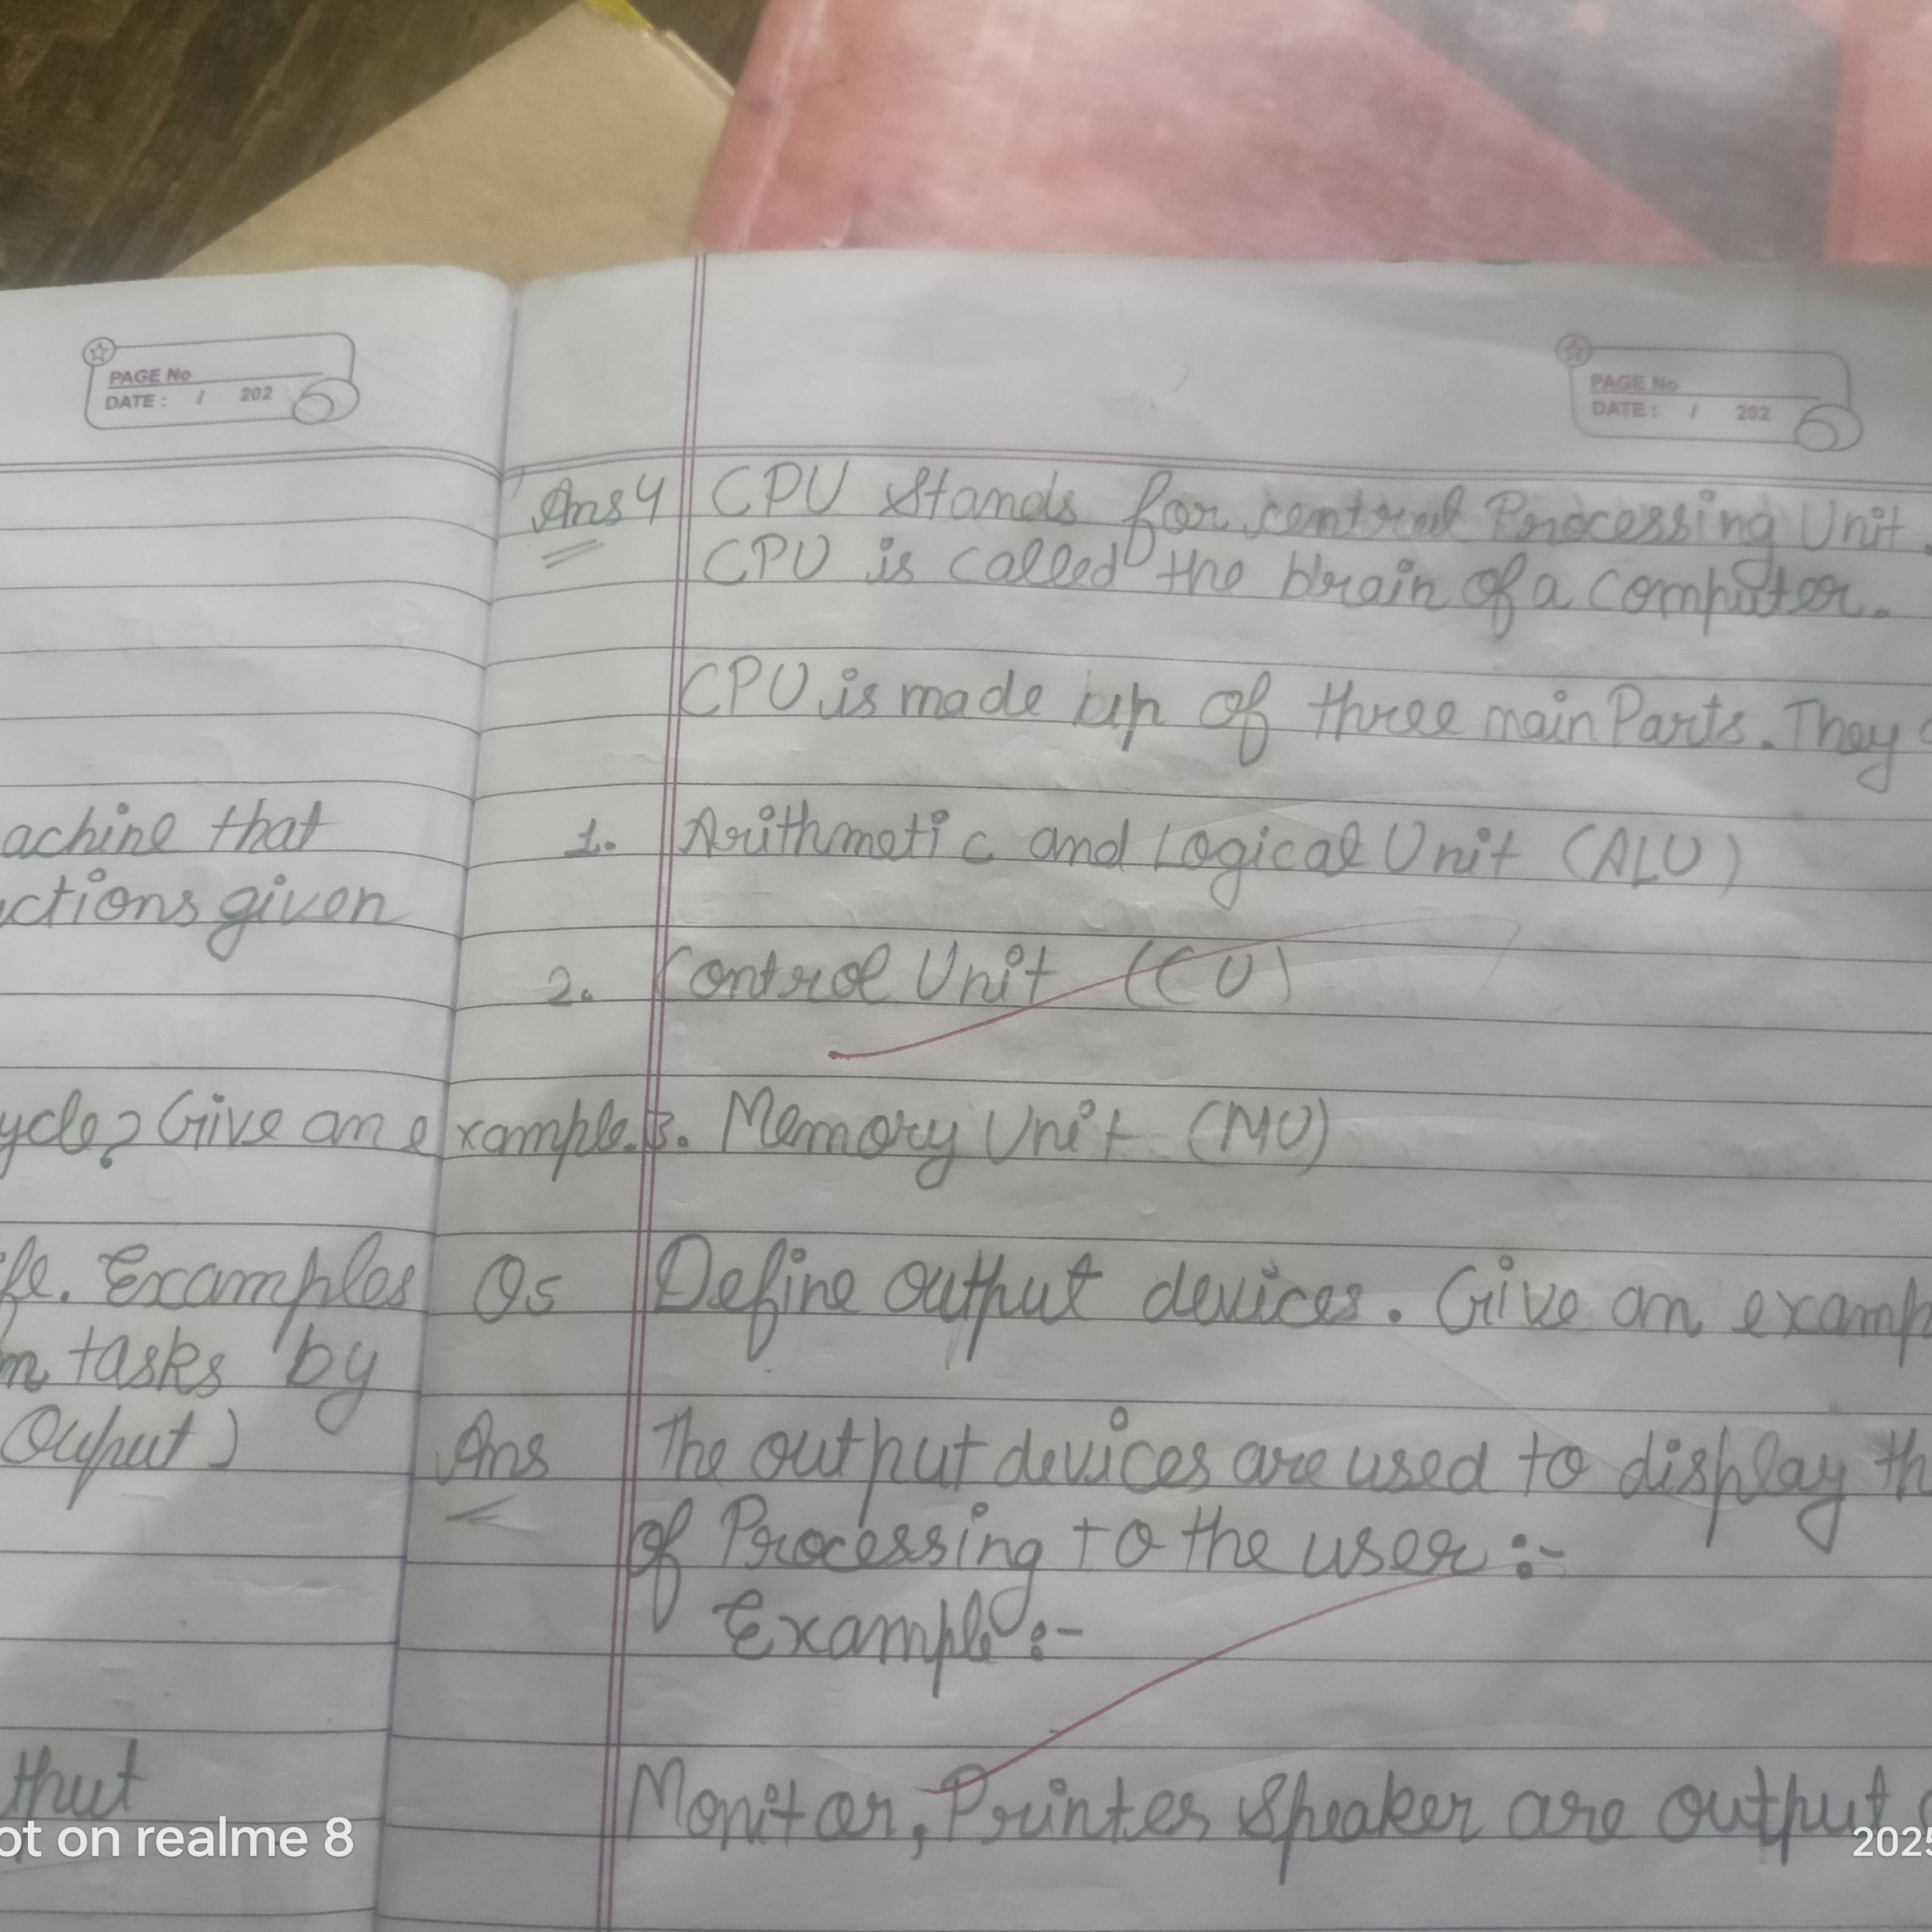 PAGE No
DATE: / 202
achine that
ctions given
ycle? Give an example.
fe. Examples
n tasks by
Output)
thut
PAGE No
DATE: / 202
Ans 4 CPU Stands for central Processing Unit.
CPU is called the brain of a computer.
CPU is made up of three main Parts. They
1. Arithmetic and Logical Unit (ALU)
2. Control Unit (CU)
3. Memory Unit (MU)
Q5 Define output devices. Give an examp
Ans The output devices are used to display th
of Processing to the user :-
Example :-
Monitor, Printes Speaker are output
ot on realme 8
2025